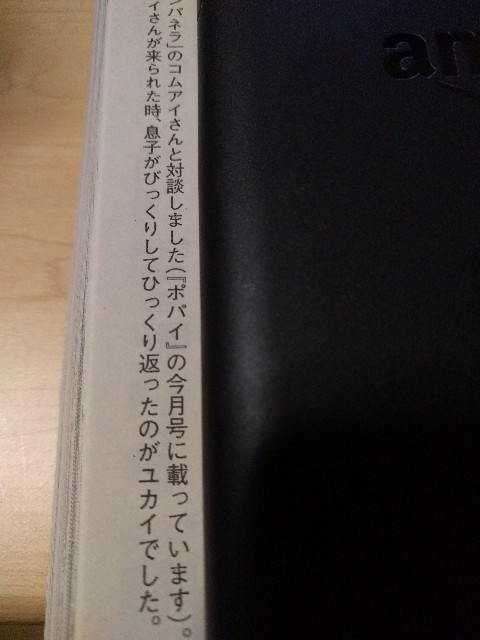 ンパネラ」のコムアイさんと対談しました(『ポパイ』の今月号に載っています)。
イさんが来られた時、息子がびっくりしてひっくり返ったのがユカイでした。
am